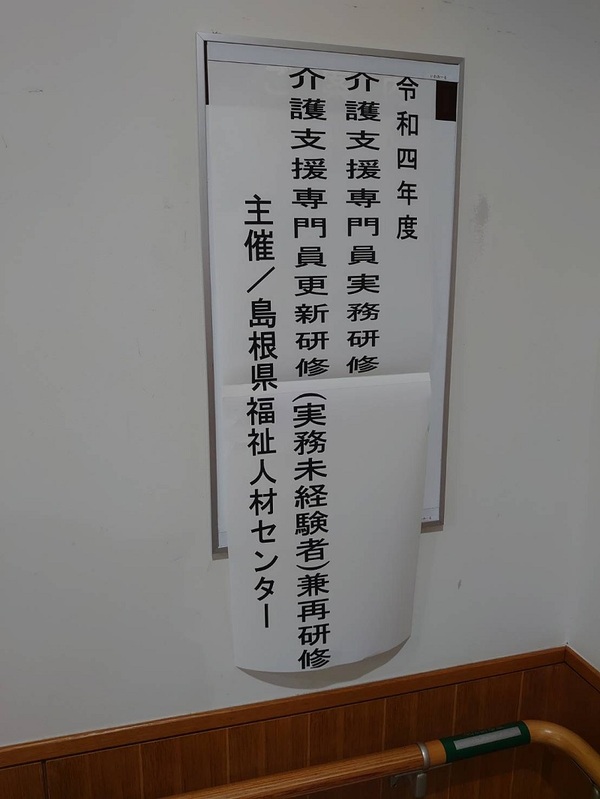 令和四年度
介護支援専門員実務研修
介護支援専門員更新研修(実務未経験者)兼再研修
主催/島根県福祉人材センター